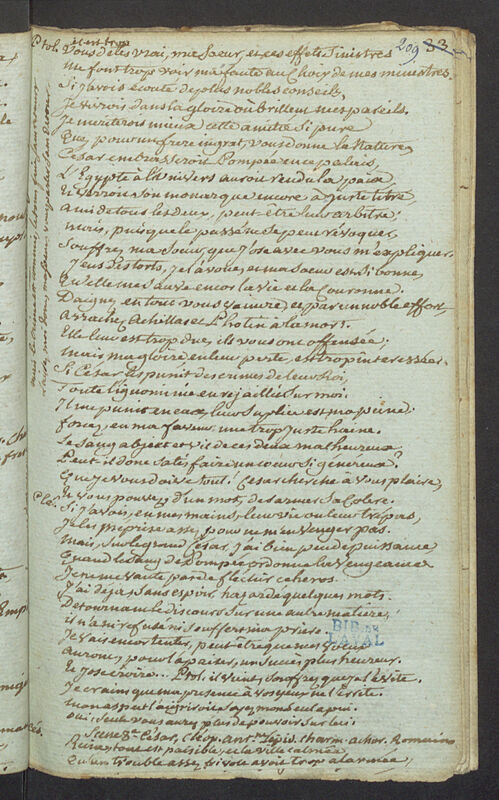 209 33
il est trop
Ptol. Vous dites vrai, ma Soeur, et ces effets Sinistres
me font trop voir ma faute au Choix de mes ministres.
Si j'avois écouté de plus nobles conseils,
Je vivrois dans la gloire où brillent mes pareils.
Je meriterois mieux cette amitié Si pure
Que, pour un frere ingrat, vous donne la Nature,
Cesar embrasseroit Pompée en ce palais,
L'Egypte à l'univers auroit rendu la paix
Et verroit son monarque encore à juste titre
ami de tous les deux, peut-être leur arbitre;
mais, puisque le passé ne se peut révoquer
Souffrez, ma Soeur, que j'ose avec vous m'expliquer.
J'eus des torts, je l'avoue, et ma Soeur est Si bonne
Qu'elle me Sauve encor la vie et la Couronne.
Daignez en tout vous vaincre, et par un noble effort,
Arrachez Achillas et Photin à la mort.
Elle leur est trop due; ils vous ont offensée;
mais ma gloire en leur perte est trop interessée.
Si Cesar les punit des crimes de leur Roi,
Toute l'ignominie en rejaillit Sur moi.
Il me punit en eux, leur Suplice est ma peine:
forcez, en ma faveur une trop juste haine.
Le Sang abject et vil de ces deux malheureux
Peut-il donc Satisfaire un coeur Si généreux?
Que je vous doive tout! Cesar cherche à vous plaire,
Et vous pouvez d'un mot, desarmer Sa Colere.
Cle. Si j'avois, en mes mains, leur vie ou leur trépas,
Je les méprise assez pour ne m'en venger pas.
Mais, Sur le grand Cesar, j'ai bien peu de puissance
Quand le Sang de Pompée ordonne la vengeance
Je ne me vante pas de flechir ce heros.
J'ai déja, Sans espoir, hazardé quelques mots.
Détournant le discours Sur une autre matiere,
il n'a ni refusé ni Souffert ma priere.
Je vais encor tenter, peut-être que mes voeux
auront, pour l'apaiser, un Succès plus heureux.
Et j'ose croire... Ptol. il vient, Souffrez que je l'évite.
Je crains que ma présence à vos yeux ne l'irrite.
mon aspect l'aigriroit
oui, Seule vous aurez plus de pouvoir Sur lui.
Scene 8e. César, Cléop. ant. Lépid. charm. achor. Romains
Reine, tout est paisible, et la ville calmée,
Qu'un trouble assez frivole avoit trop alarmée,
BIB. DE
LAVAL